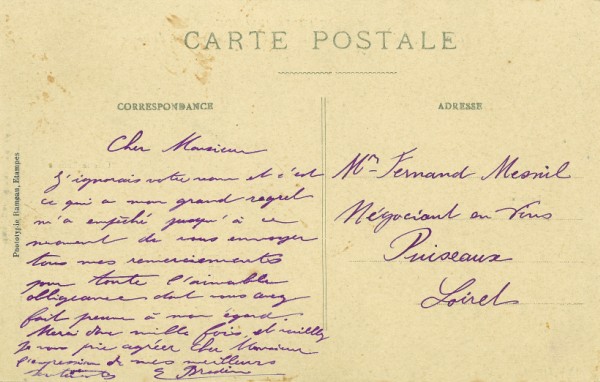 CARTE POSTALE
CORRESPONDANCE
ADRESSE
Phototypie Rameau, Etampes
Cher Monsieur
J'ignorais votre nom et c'est
ce qui a mon grand regret
m'a empêché jusqu'à ce
moment de vous envoyer
tous mes remerciements
pour toute l'aimable
obligeance dont vous avez
fait preuve à mon égard
Merci donc mille fois et veuillez
Je vous prie agréer Cher Monsieur
l'expression de mes meilleurs
Mr Fernand Mesnil
Négociant en Vins
Puiseaux
Loiret